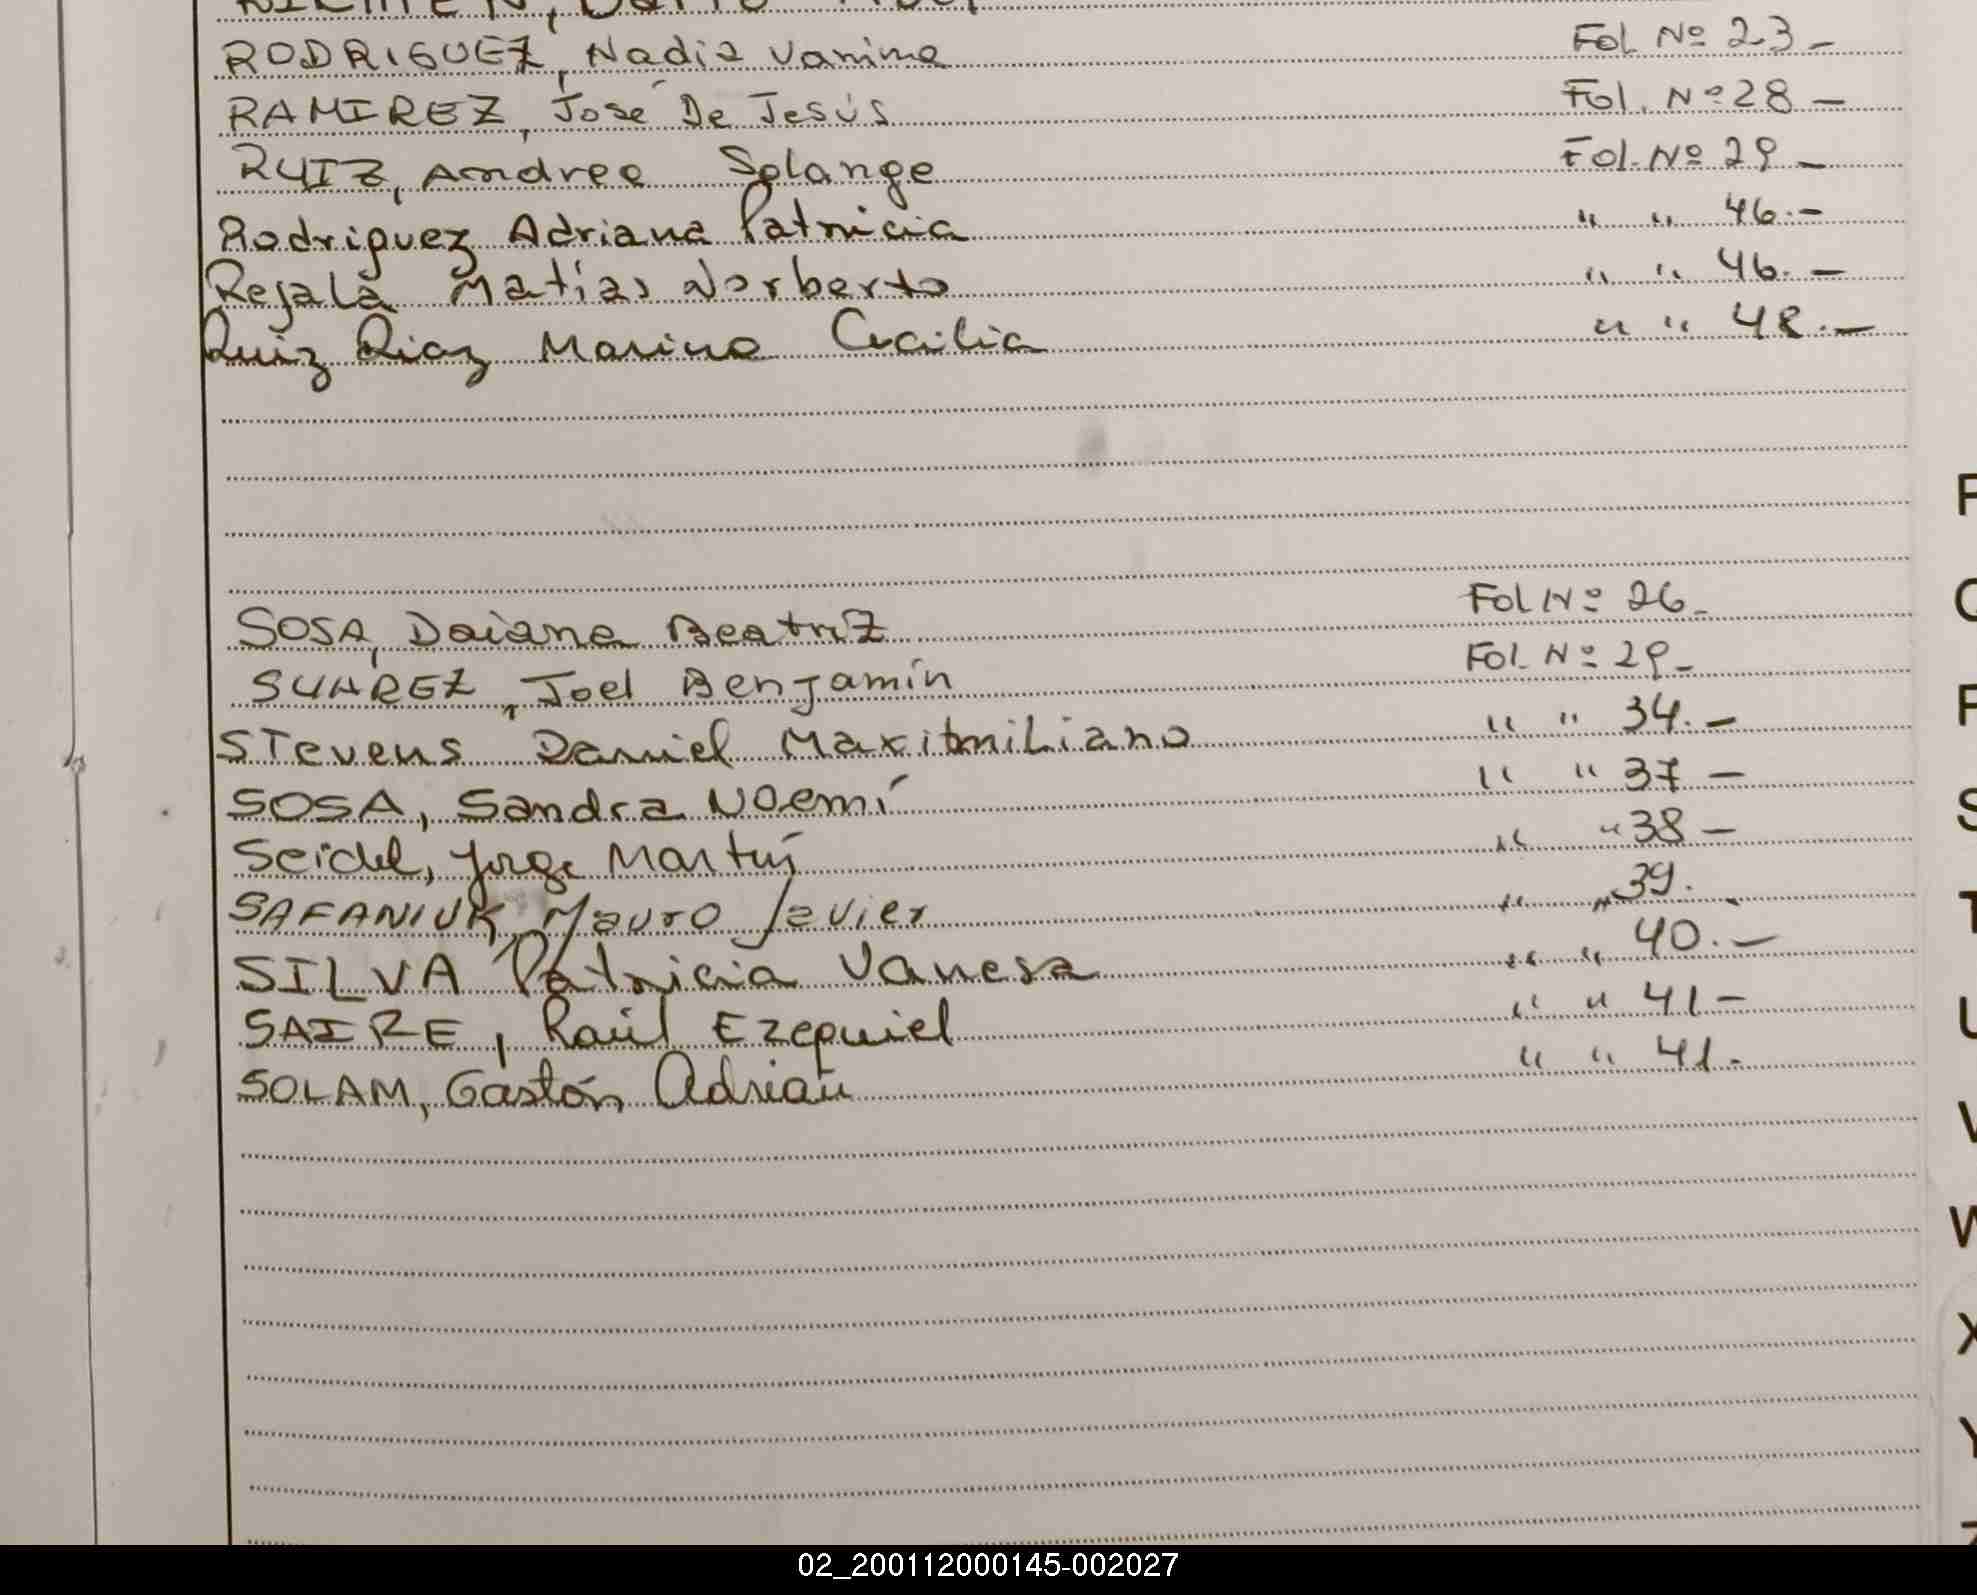 RODRIGUEZ, Nadia Vanina Fol. Nº 23-
RAMIREZ, José De Jesús Fol. Nº 28-
RUIZ, Andrea Solange Fol. Nº 29-
Rodriguez Adriana Patricia " " 46.-
Rejala Matías Norberto " " 46.-
Ruiz Diaz Marina Cecilia " " 48.-
SOSA, Daiana Beatriz Fol Nº 26-
SUAREZ, Joel Benjamín Fol. Nº 29-
Stevens Daniel Maximiliano " " 34.-
SOSA, Sandra Noemí " " 37-
Seidel, Jorge Martín " " 38-
SAFANIUK, Mauro Javier " " 39.-
SILVA Patricia Vanesa " " 40.-
SAIRE, Raúl Ezequiel " " 41-
SOLAM, Gastón Adrian " " 41.-
T
V
W
X
Y
02_200112000145-002027